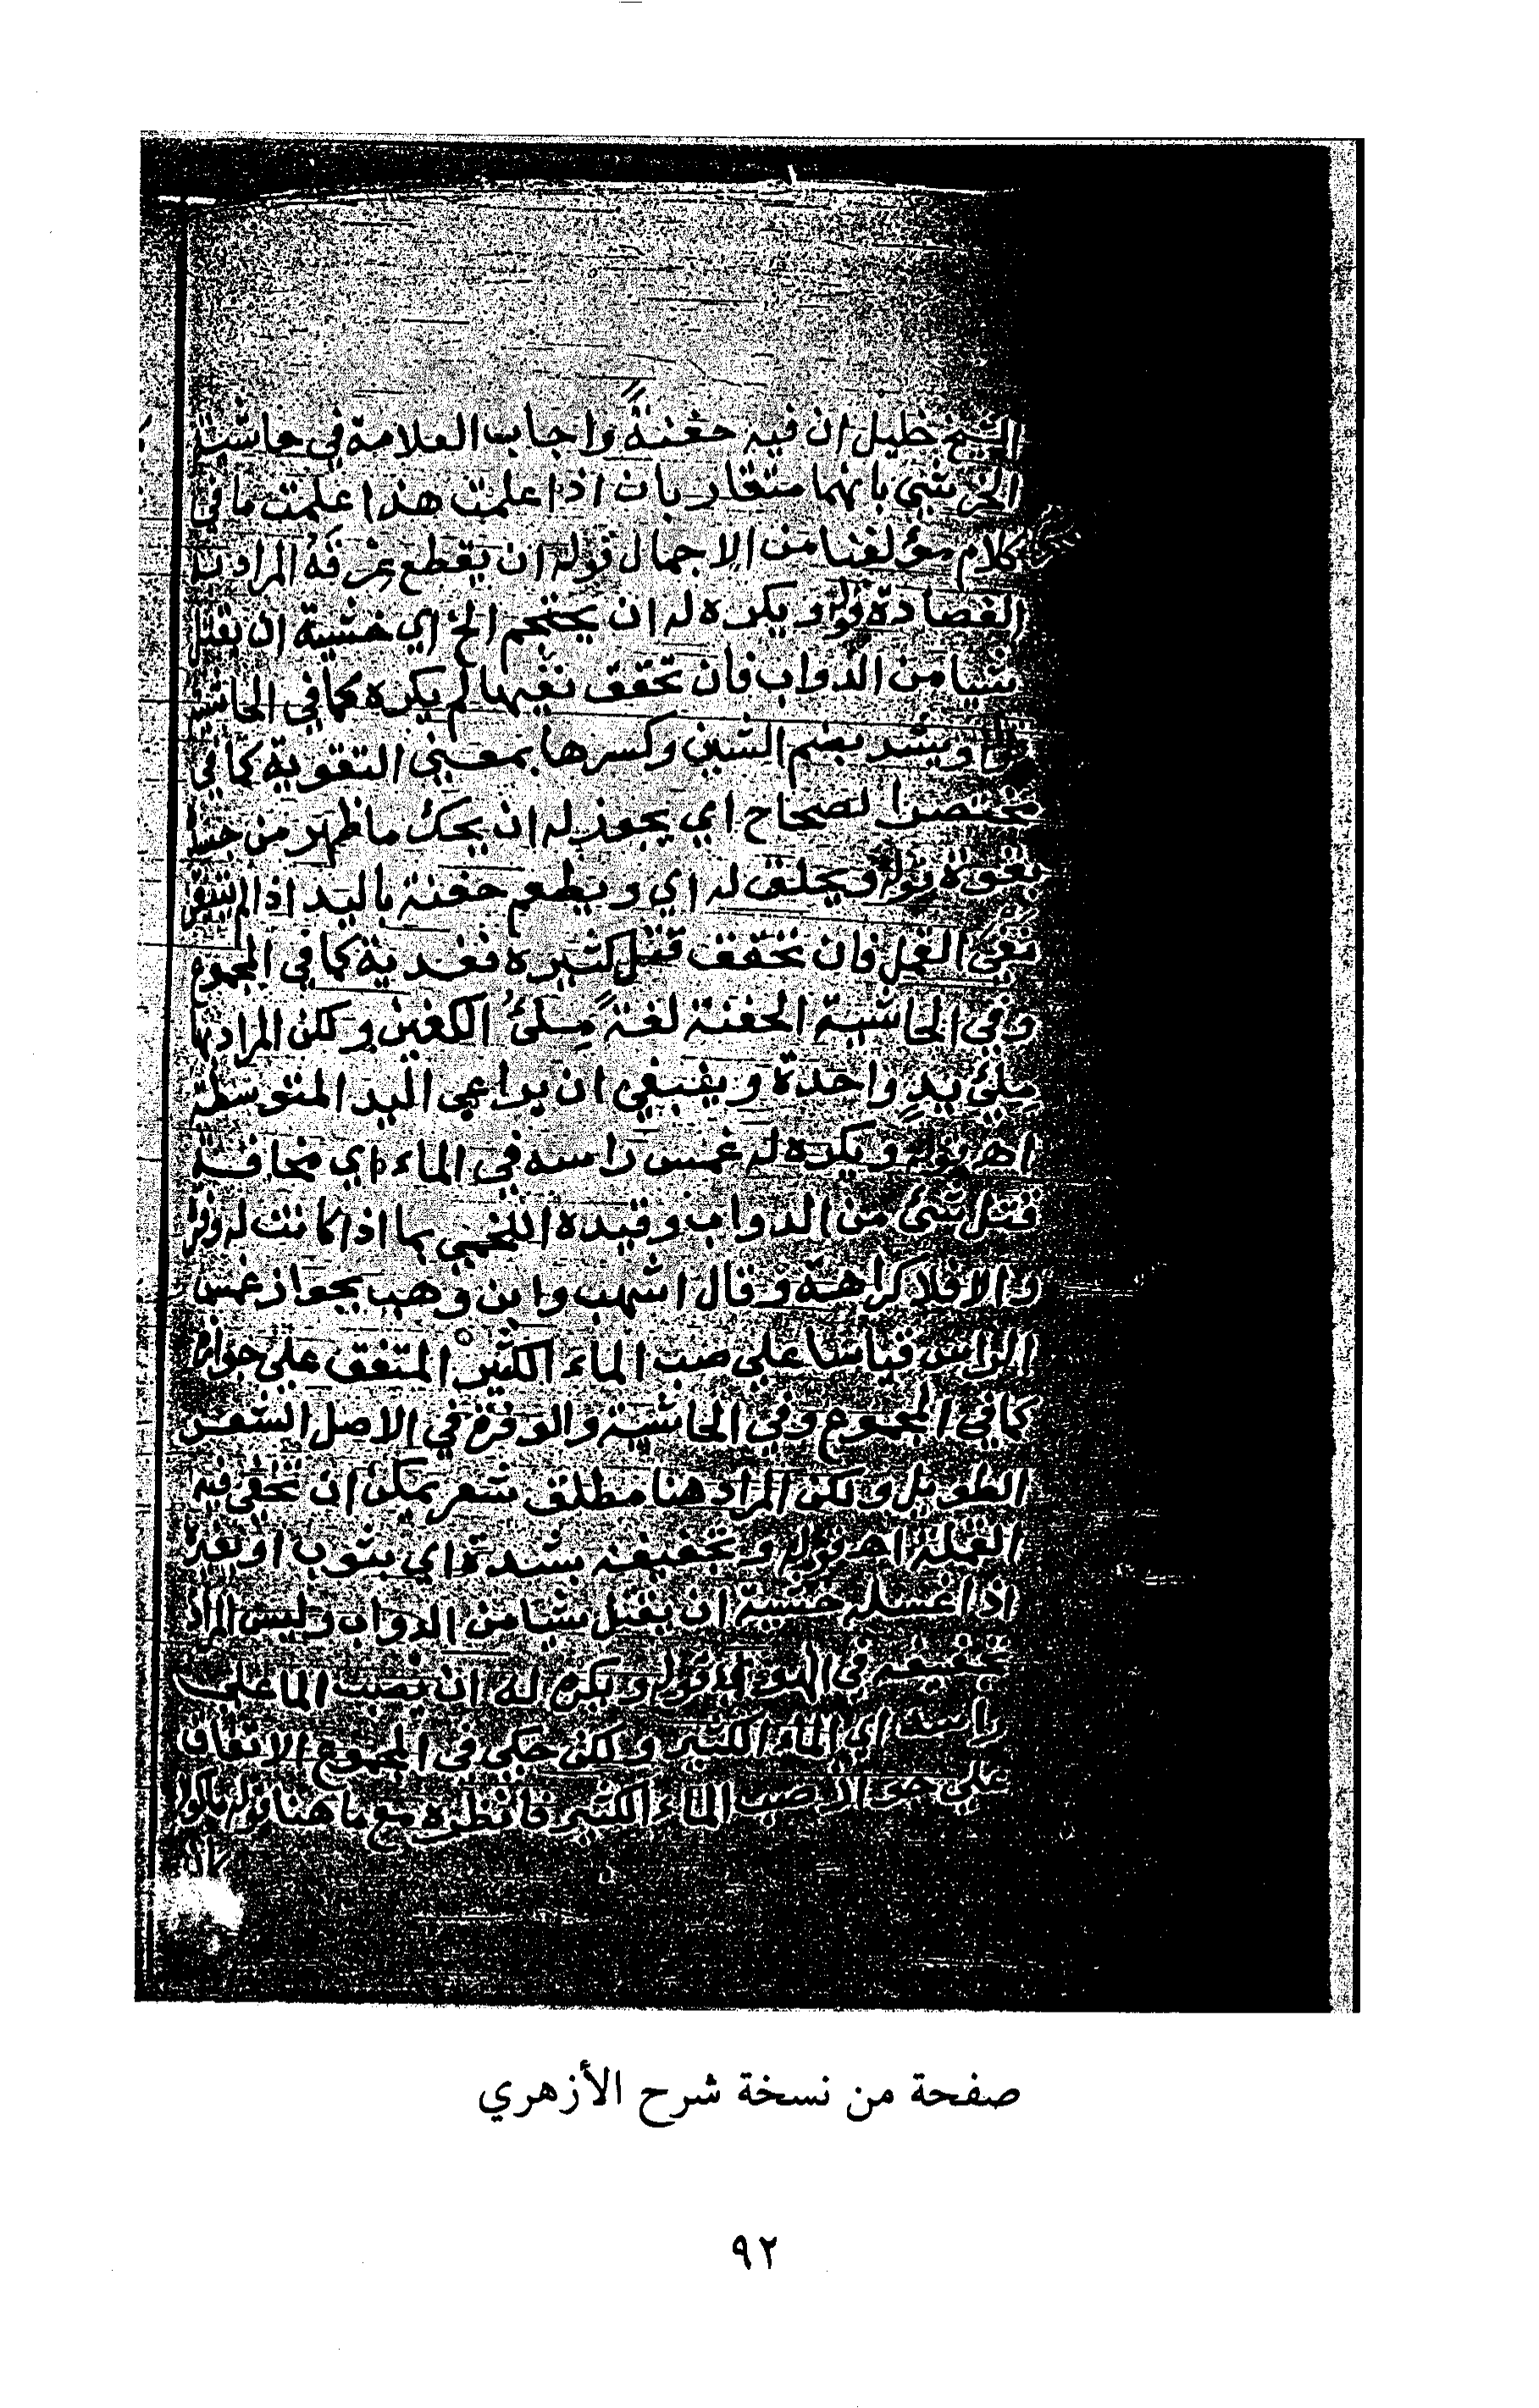 الشيخ خليل ان فيه حفنة واجاب العلامة في حاشية
الخرشي بانهما متقاربان اذا علمت هذا علمت ما في
كلام مؤلفنا من الاجمال قوله ان يقطع عرقه المراد به
الفصادة قوله ويكره له ان يحتجم الخ اي خشية ان يقتل
شيا من الدواب فان تحقق نفيها لم يكره كما في الحاشية
قوله ويشد بضم الشين وكسرها بمعني التقوية كما في
مختصر الصحاح اي يجوز له ان يحك ما ظهر من جسده
بقوة قوله ويحلق له اي ويطعم حفنة باليد اذا لم يتيقن
نفي القمل فان تحقق قتل كثيره ففدية كما في المجموع
وفي الحاشية الحفنة لغة ملئ الكفين ولكن المراد بها
ملئ يد واحدة وينبغي ان يراعي اليد المتوسطة
اهـ قوله ويكره له غمس راسه في الماء اي مخافة
قتل شئ من الدواب وقيده اللخمي بما اذا كانت له وفرة
والا فلا كراهة وقال اشهب وابن وهب بجواز غمس
الراس قياسا علي صب الماء الكثير المتفق علي جوازه
كما في المجموع وفي الحاشية والوفرة في الاصل الشعر
الطويل ولكن المراد هنا مطلق شعر يمكن ان تخفي فيه
القملة اهـ قوله وتجفيفه بشدة اي بثوب او بغيره
اذا غسله خشية ان يقتل شيا من الدواب وليس المراد
تجفيفه في الهوي قوله ويكره له ان يصب الما علي
راسه اي الماء الكثير ولكن حكي في المجموع الاتفاق
علي جواز صب الماء الكثير فانظره مع ما هنا قوله
صفحة من نسخة شرح الأزهري
٩٢